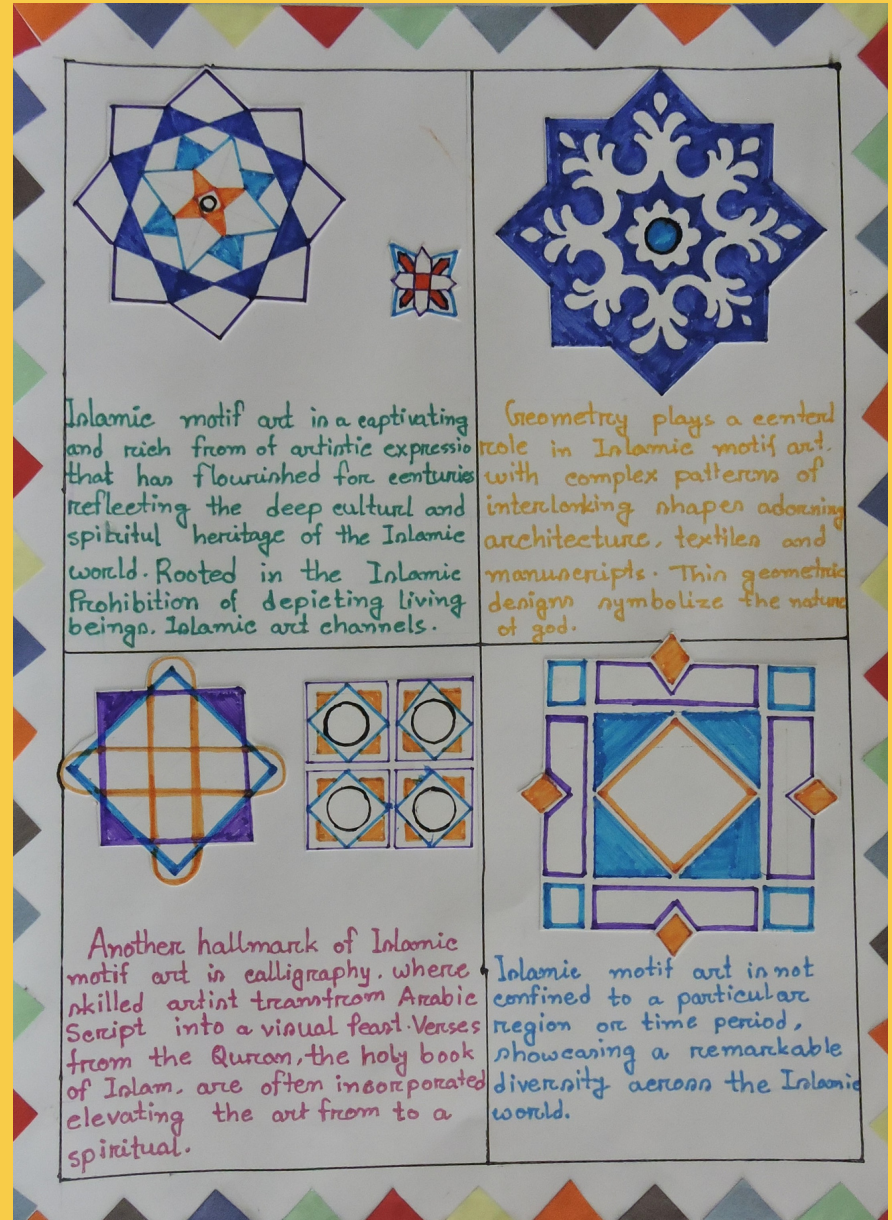 Islamic motif art is a captivating
and rich from of artistic expressio
that has flourished for centuries
reflecting the deep culturl and
spiritul heritage of the Islamic
world. Rooted in the Islamic
Prohibition of depicting living
beings. Islamic art channels.
Geometry plays a centerl
role in Islamic motif art.
with complex patterns of
interlonking shapes adorning
architecture, textiles and
manuscripts. This geometric
designs symbolize the nature
of god.
Another hallmark of Islamic
motif art is calligraphy. where
skilled artist transfrom Arabic
Script into a visual feast. Verses
from the Quran, the holy book
of Islam, are often incorporated
elevating the art from to a
spiritual.
Islamic motif art is not
confined to a particular
region or time period,
showcasing a remarkable
diversity across the Islamic
world.